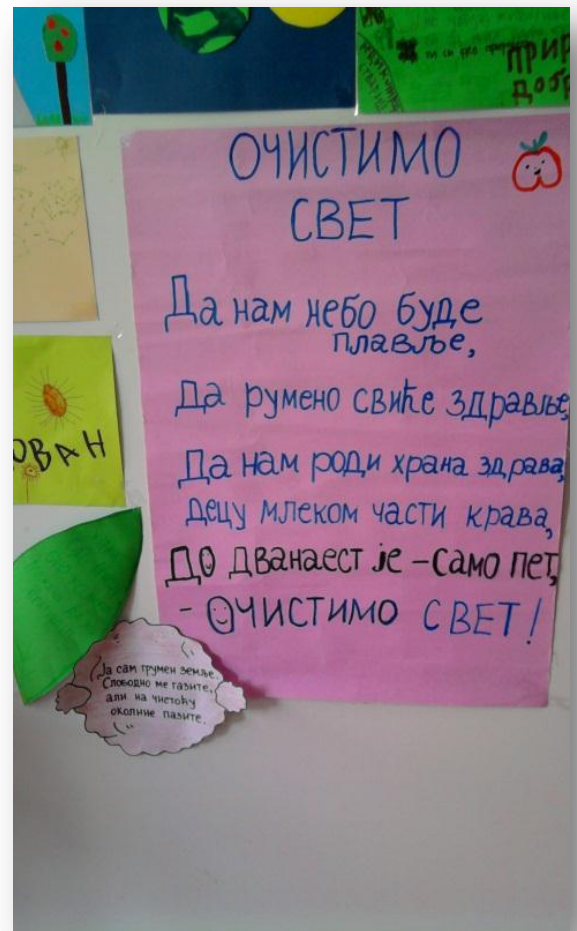 ПРИР
ДОБР
ОЧИСТИМО
СВЕТ
Да нам небо буде
плавље,
Да румено свиће здравље,
Да нам роди храна здрава,
децу млеком части крава,
ДО дванаест је – само пет,
- ОЧИСТИМО СВЕТ!
ОВАН
Ја сам грумен земље.
Слободно ме газите,
али на чистоћу
околине пазите.